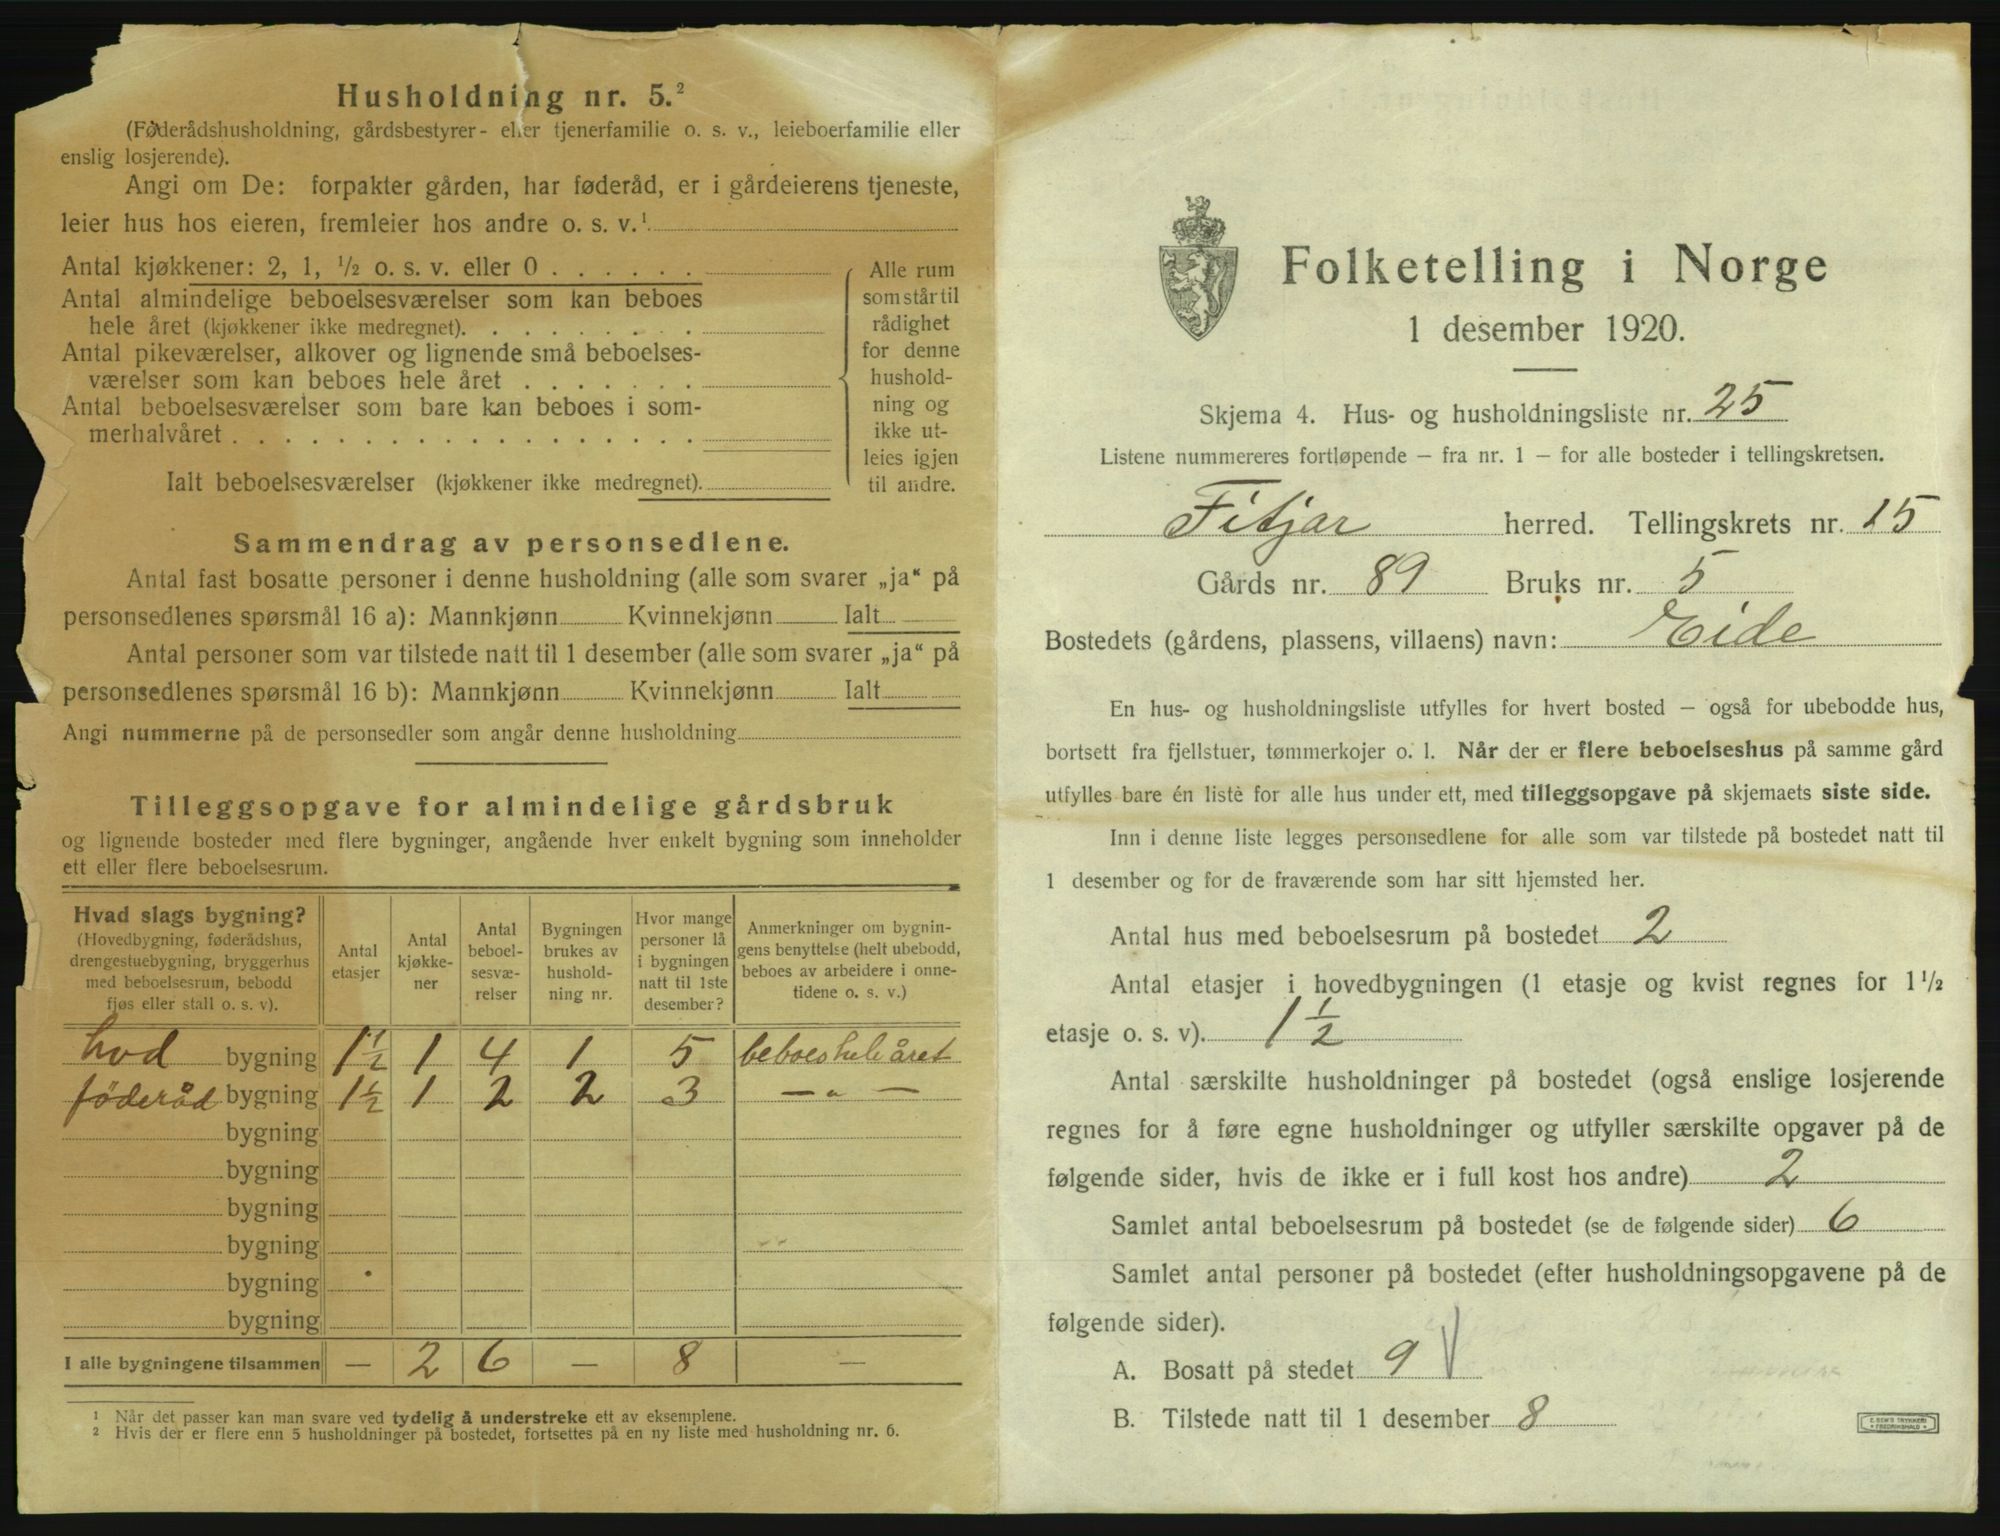 Husholdning nr. 5.²
(Føderådshusholdning, gårdsbestyrer- eller tjenerfamilie o. s. v., leieboerfamilie eller
enslig losjerende).
Angi om De: forpakter gården, har føderåd, er i gårdeierens tjeneste,
leier hus hos eieren, fremleier hos andre o. s. v.¹
Antal kjøkkener: 2, 1, ½ o. s. v. eller 0 . . . . . .
Antal almindelige beboelsesværelser som kan beboes
hele året (kjøkkener ikke medregnet). . . . . . . . .
Antal pikeværelser, alkover og lignende små beboelses-
værelser som kan beboes hele året . . . . . . .
Antal beboelsesværelser som bare kan beboes i som-
merhalvåret . . . . . . . . . . . . . . . . . .
Ialt beboelsesværelser (kjøkkener ikke medregnet).
Alle rum
som står til
rådighet
for denne
hushold-
ning og
ikke ut-
leies igjen
til andre.
Sammendrag av personsedlene.
Antal fast bosatte personer i denne husholdning (alle som svarer „ja“ på
personsedlenes spørsmål 16 a): Mannkjønn Kvinnekjønn Ialt
Antal personer som var tilstede natt til 1 desember (alle som svarer „ja“ på
personsedlenes spørsmål 16 b): Mannkjønn Kvinnekjønn Ialt
Angi nummerne på de personsedler som angår denne husholdning
Tilleggsopgave for almindelige gårdsbruk
og lignende bosteder med flere bygninger, angående hver enkelt bygning som inneholder
ett eller flere beboelsesrum.
Hvad slags bygning?
(Hovedbygning, føderådshus,
drengestuebygning, bryggerhus
med beboelsesrum, bebodd
fjøs eller stall o. s. v).
Antal
etasjer
Antal
kjøkke-
ner
Antal
beboel-
sesvæ-
relser
Bygningen
brukes av
hushold-
ning nr.
Hvor mange
personer lå
i bygningen
natt til 1ste
desember?
Anmerkninger om bygnin-
gens benyttelse (helt ubebodd,
beboes av arbeidere i onne-
tidene o. s. v.)
hvd bygning 1½ 1 4 1 5 beboes hele året
föderåd bygning 1½ 1 2 2 3 — „ —
bygning
bygning
bygning
bygning
bygning
bygning
I alle bygningene tilsammen — 2 6 — 8 —
¹ Når det passer kan man svare ved tydelig å understreke ett av eksemplene.
² Hvis der er flere enn 5 husholdninger på bostedet, fortsettes på en ny liste med husholdning nr. 6.
Folketelling i Norge
1 desember 1920.
Skjema 4. Hus- og husholdningsliste nr. 25
Listene nummereres fortløpende – fra nr. 1 – for alle bosteder i tellingskretsen.
Fitjar herred. Tellingskrets nr. 15
Gårds nr. 89 Bruks nr. 5
Bostedets (gårdens, plassens, villaens) navn: Eide
En hus- og husholdningsliste utfylles for hvert bosted – også for ubebodde hus,
bortsett fra fjellstuer, tømmerkojer o. l. Når der er flere beboelseshus på samme gård
utfylles bare én liste for alle hus under ett, med tilleggsopgave på skjemaets siste side.
Inn i denne liste legges personsedlene for alle som var tilstede på bostedet natt til
1 desember og for de fraværende som har sitt hjemsted her.
Antal hus med beboelsesrum på bostedet 2
Antal etasjer i hovedbygningen (1 etasje og kvist regnes for 1½
etasje o. s. v). 1½
Antal særskilte husholdninger på bostedet (også enslige losjerende
regnes for å føre egne husholdninger og utfyller særskilte opgaver på de
følgende sider, hvis de ikke er i full kost hos andre) 2
Samlet antal beboelsesrum på bostedet (se de følgende sider) 6
Samlet antal personer på bostedet (efter husholdningsopgavene på de
følgende sider).
A. Bosatt på stedet 9
B. Tilstede natt til 1 desember 8
E. SEM'S TRYKKERI
FREDRIKSHALD